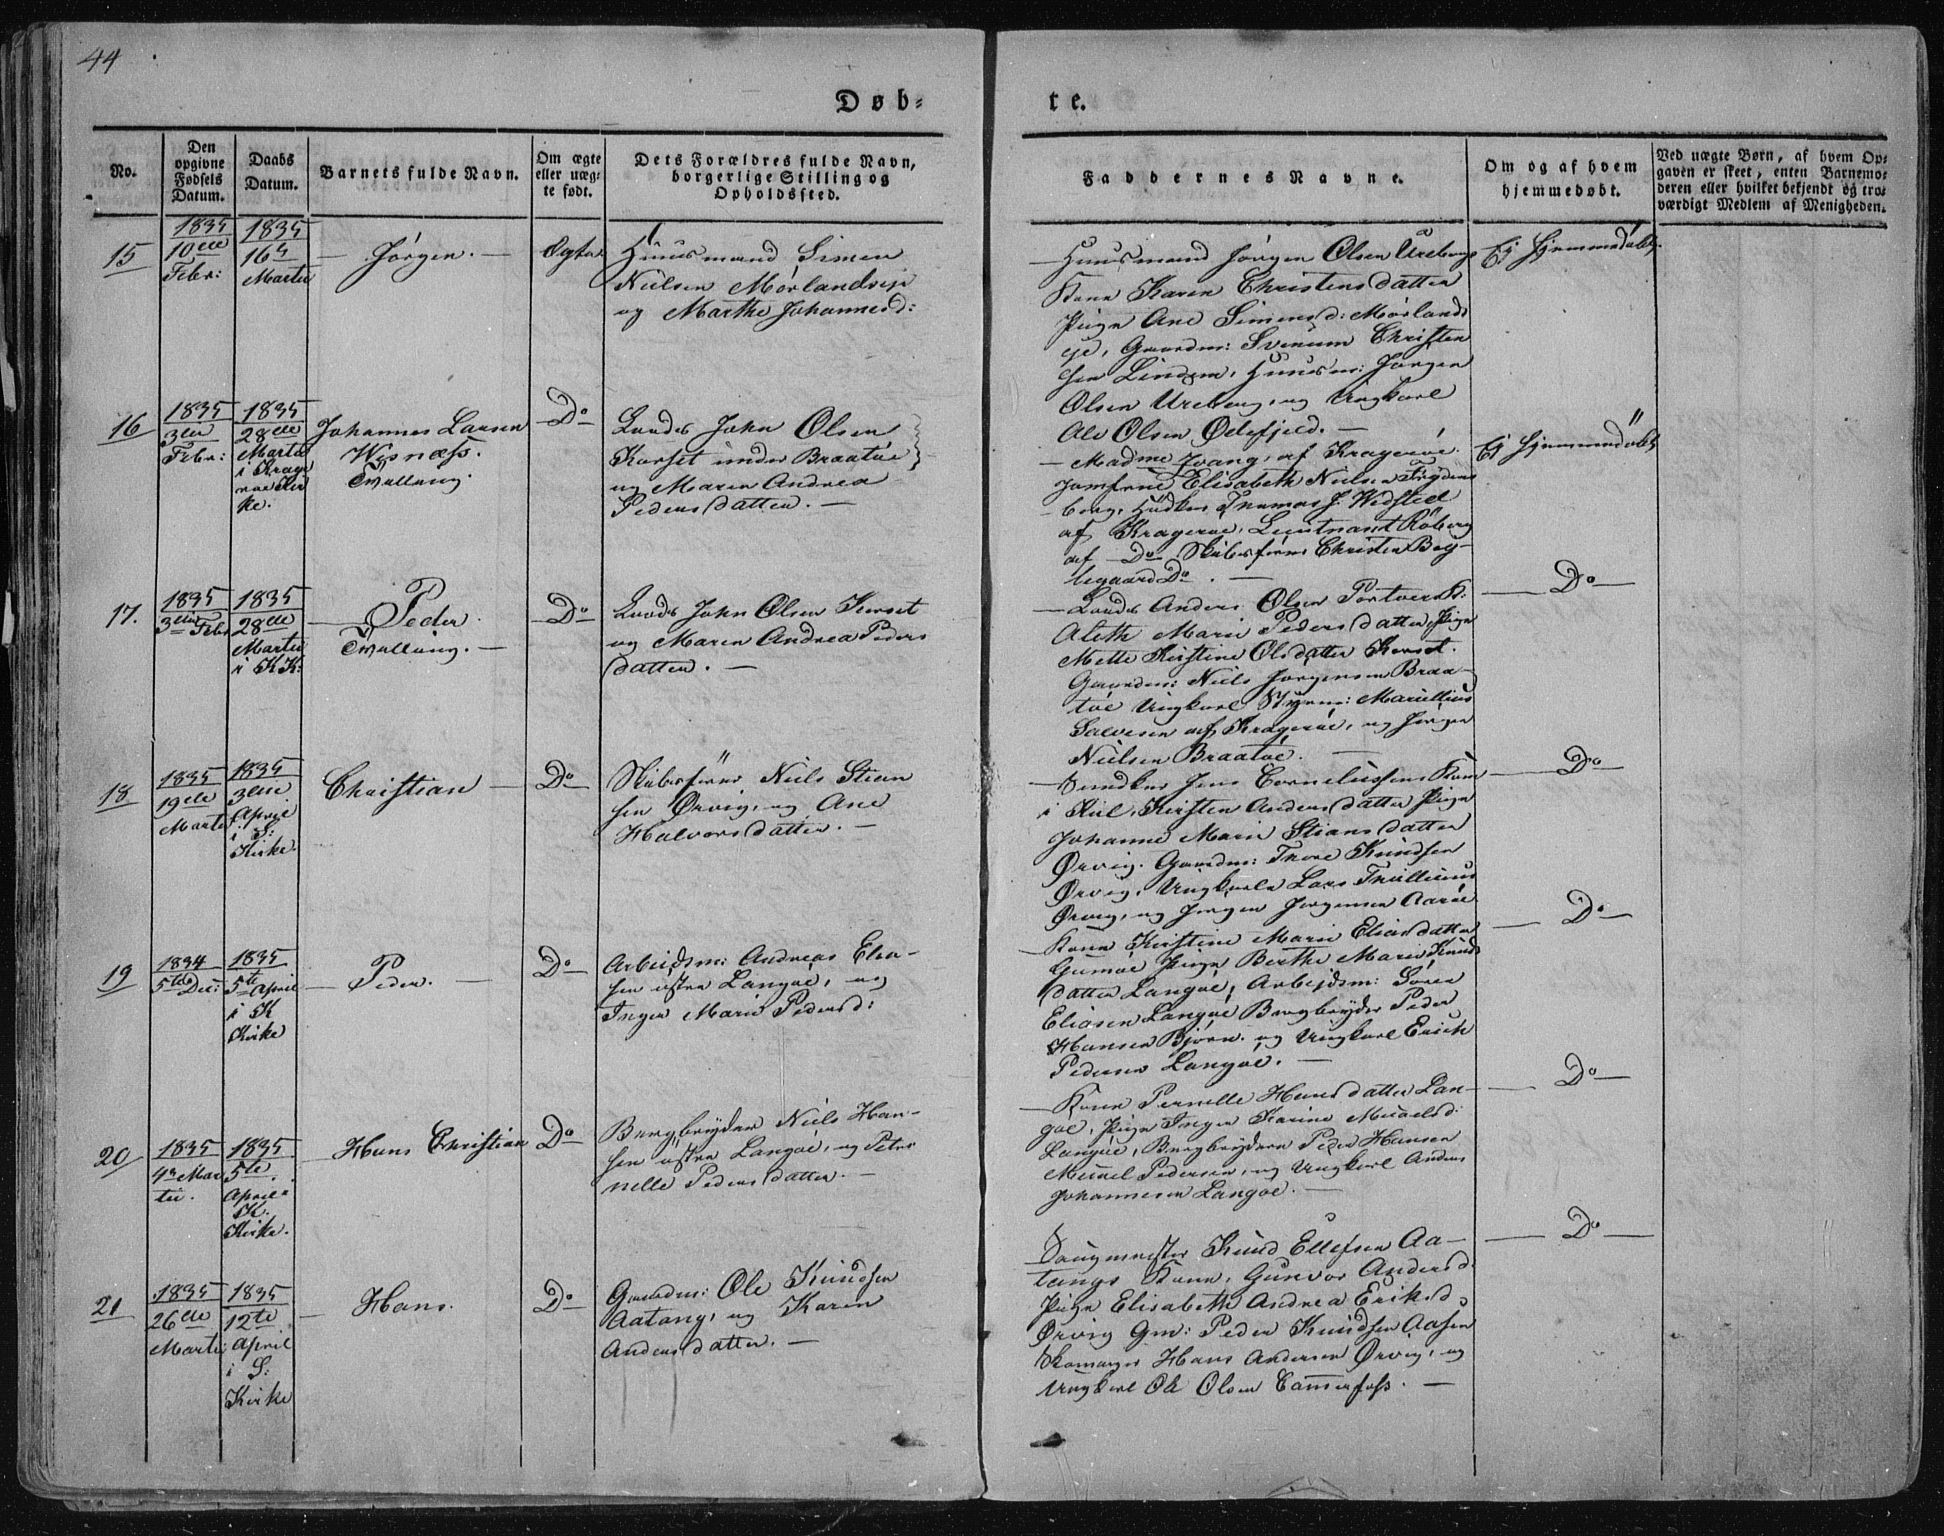 44
Døb-
te.
No.
Den opgivne Fødsels Datum.
Daabs Datum.
Barnets fulde Navn.
Om ægte eller uægte født.
Dets Forældres fulde Navn, borgerlige Stilling og Opholdssted.
Faddernes Navne.
Om og af hvem hjemmedøbt.
Ved uægte Børn, af hvem Opgaven er skeet, enten Barnemoderen eller hvilket bekjendt og troværdigt Medlem af Menigheden.
15
1835
10de
Febr:
1835
16de
Martii
Jørgen
Ægte
Huusmand Simen
Nielsen Mørlandseje
og Marthe Johannesd:
Huusmand Jørgen Olsen Ureberg
Kone Karen Christensdatter
Pigen Ane Simensd: Mørlands
eje, Gaardm: Svenum Christen
sen Linden, Huusm: Jørgen
Olsen Ureberg, og Ungkarl
Ole Olsen Ødefjeld.
Ej hjemmedøbt
16
1835
3die
Febr:
1835
28de
Martii
i Krage
røe Kir
ke.
Johannes Larsen
Wisnæss.
Tvilling.
Do
Lods John Olsen
Korset under Braatøe
og Maren Andrea
Pedersdatter.
Madme Zwang, af Kragerøe
Jomfrue Elisabeth Nielsen Fryden
borg, Thomas J. Wedsted
af Kragerøe, Lieutnant Röberg
af Do Skibsfører Christen Bøg-
legaard Do.
Ej hjemmedøbt
17.
1835
3die Febr
1835
28de
Martii
i K.K:
Peder.
Tvilling.
Do
Lods John Olsen Korset
og Maren Andrea Peders
datter.
Lods Anders Olsen Portør K:
Aleth Marie Pedersdatter, Pigen
Mette Kirstine Olsdatter Korset.
Gaardm: Niels Jørgensen Braa-
tøe Ungkarl Styrm: Marillius
Salvesen af Kragerøe, og Jørgen
Nielsen Braatøe.
Do
18
1835
19de
Martii
1835
3die
April
i S:
Kirke.
Christian
Do
Skibsfører Niels Stian
sen Ørvig, og Ane
Halvorsdatter.
Smedker Jens Cornelussens Kone
i Kiil, Kirsten Andersdatter Pigen
Johanne Marie Stiansdatter
Ørvig. Gaardm: Thore Knudsen
Ørvig, Ungkarle Lars Trullius
Ørvig, og Jørgen Jørgensen Aarøe
Do
19
1834
5te Dec:
1835
5te April
i K
Kirke
Peder.
Do
Arbeidsm: Andreas Elia-
sen østre Langøe, og
Inger Marie Pedersd:
Kone Kirstine Marie Eliasdatter
Gumøe Pigen Berthe Marie Knuds
datter Langøe, Arbejdsm: Søren
Eliasen Langøe Bergbryder Peder
Hansen Bjørn. og Ungkarl Erich
Pedersen Langøe.
Do
20
1835
4de Mar
tii.
1835
5te
April
K:
Kirke.
Hans Christian
Do
Bergbryder Niels Han-
sen østre Langøe, og Peter
nelle Pedersdatter.
Kone Pernelle Hansdatter Lan-
gøe, Pigen Inger Karine Michelsd:
Langøe, Bergbrydere Peder Hansen
Michel Pedersen, og Ungkarl Anders
Johannesen Langøe.
Do
21
1835
26de
Martii
1835
12te
April
i S:
Kirke
Hans.
Do
Gaardm: Ole Knudsen
Aatang, og Karen
Andersdatter.
Saugmester Knud Ellefsen Aa-
tangs Kone, Gunvor Andersd.
Pigen Elisabeth Andrea Eriksd.
Ørvig Gm: Peder Knudsen Aasen
Skomager Hans Andersen Ørvig, og
Ungkarl Ole Olsen Cammerfoss.
Do